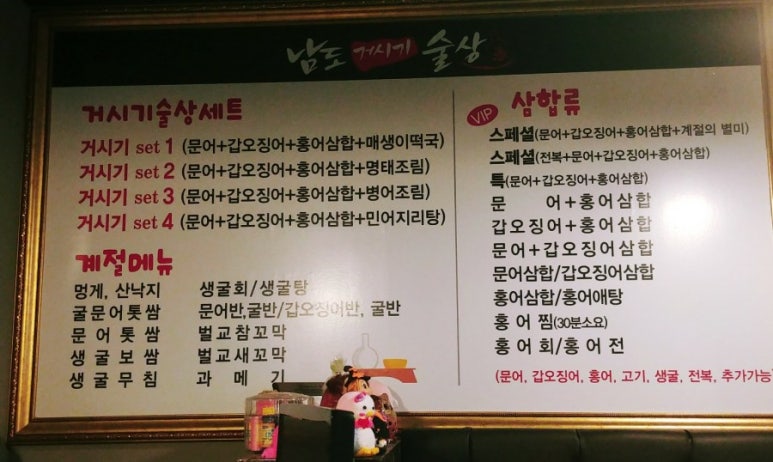 남도 거시기 술상
거시기술상세트
거시기 set 1 (문어+갑오징어+홍어삼합+매생이떡국)
거시기 set 2 (문어+갑오징어+홍어삼합+명태조림)
거시기 set 3 (문어+갑오징어+홍어삼합+병어조림)
거시기 set 4 (문어+갑오징어+홍어삼합+민어지리탕)
계절메뉴
멍게, 산낙지 생굴회/생굴탕
굴문어톳쌈 문어반,굴반/갑오징어반, 굴반
문어톳쌈 벌교참꼬막
생굴보쌈 벌교새꼬막
생굴무침 과메기
VIP 삼합류
스페셜(문어+갑오징어+홍어삼합+계절의 별미)
스페셜(전복+문어+갑오징어+홍어삼합)
특(문어+갑오징어+홍어삼합)
문어+홍어삼합
갑오징어+홍어삼합
문어+갑오징어삼합
문어삼합/갑오징어삼합
홍어삼합/홍어애탕
홍어찜(30분소요)
홍어회/홍어전
(문어, 갑오징어, 홍어, 고기, 생굴, 전복, 추가가능)